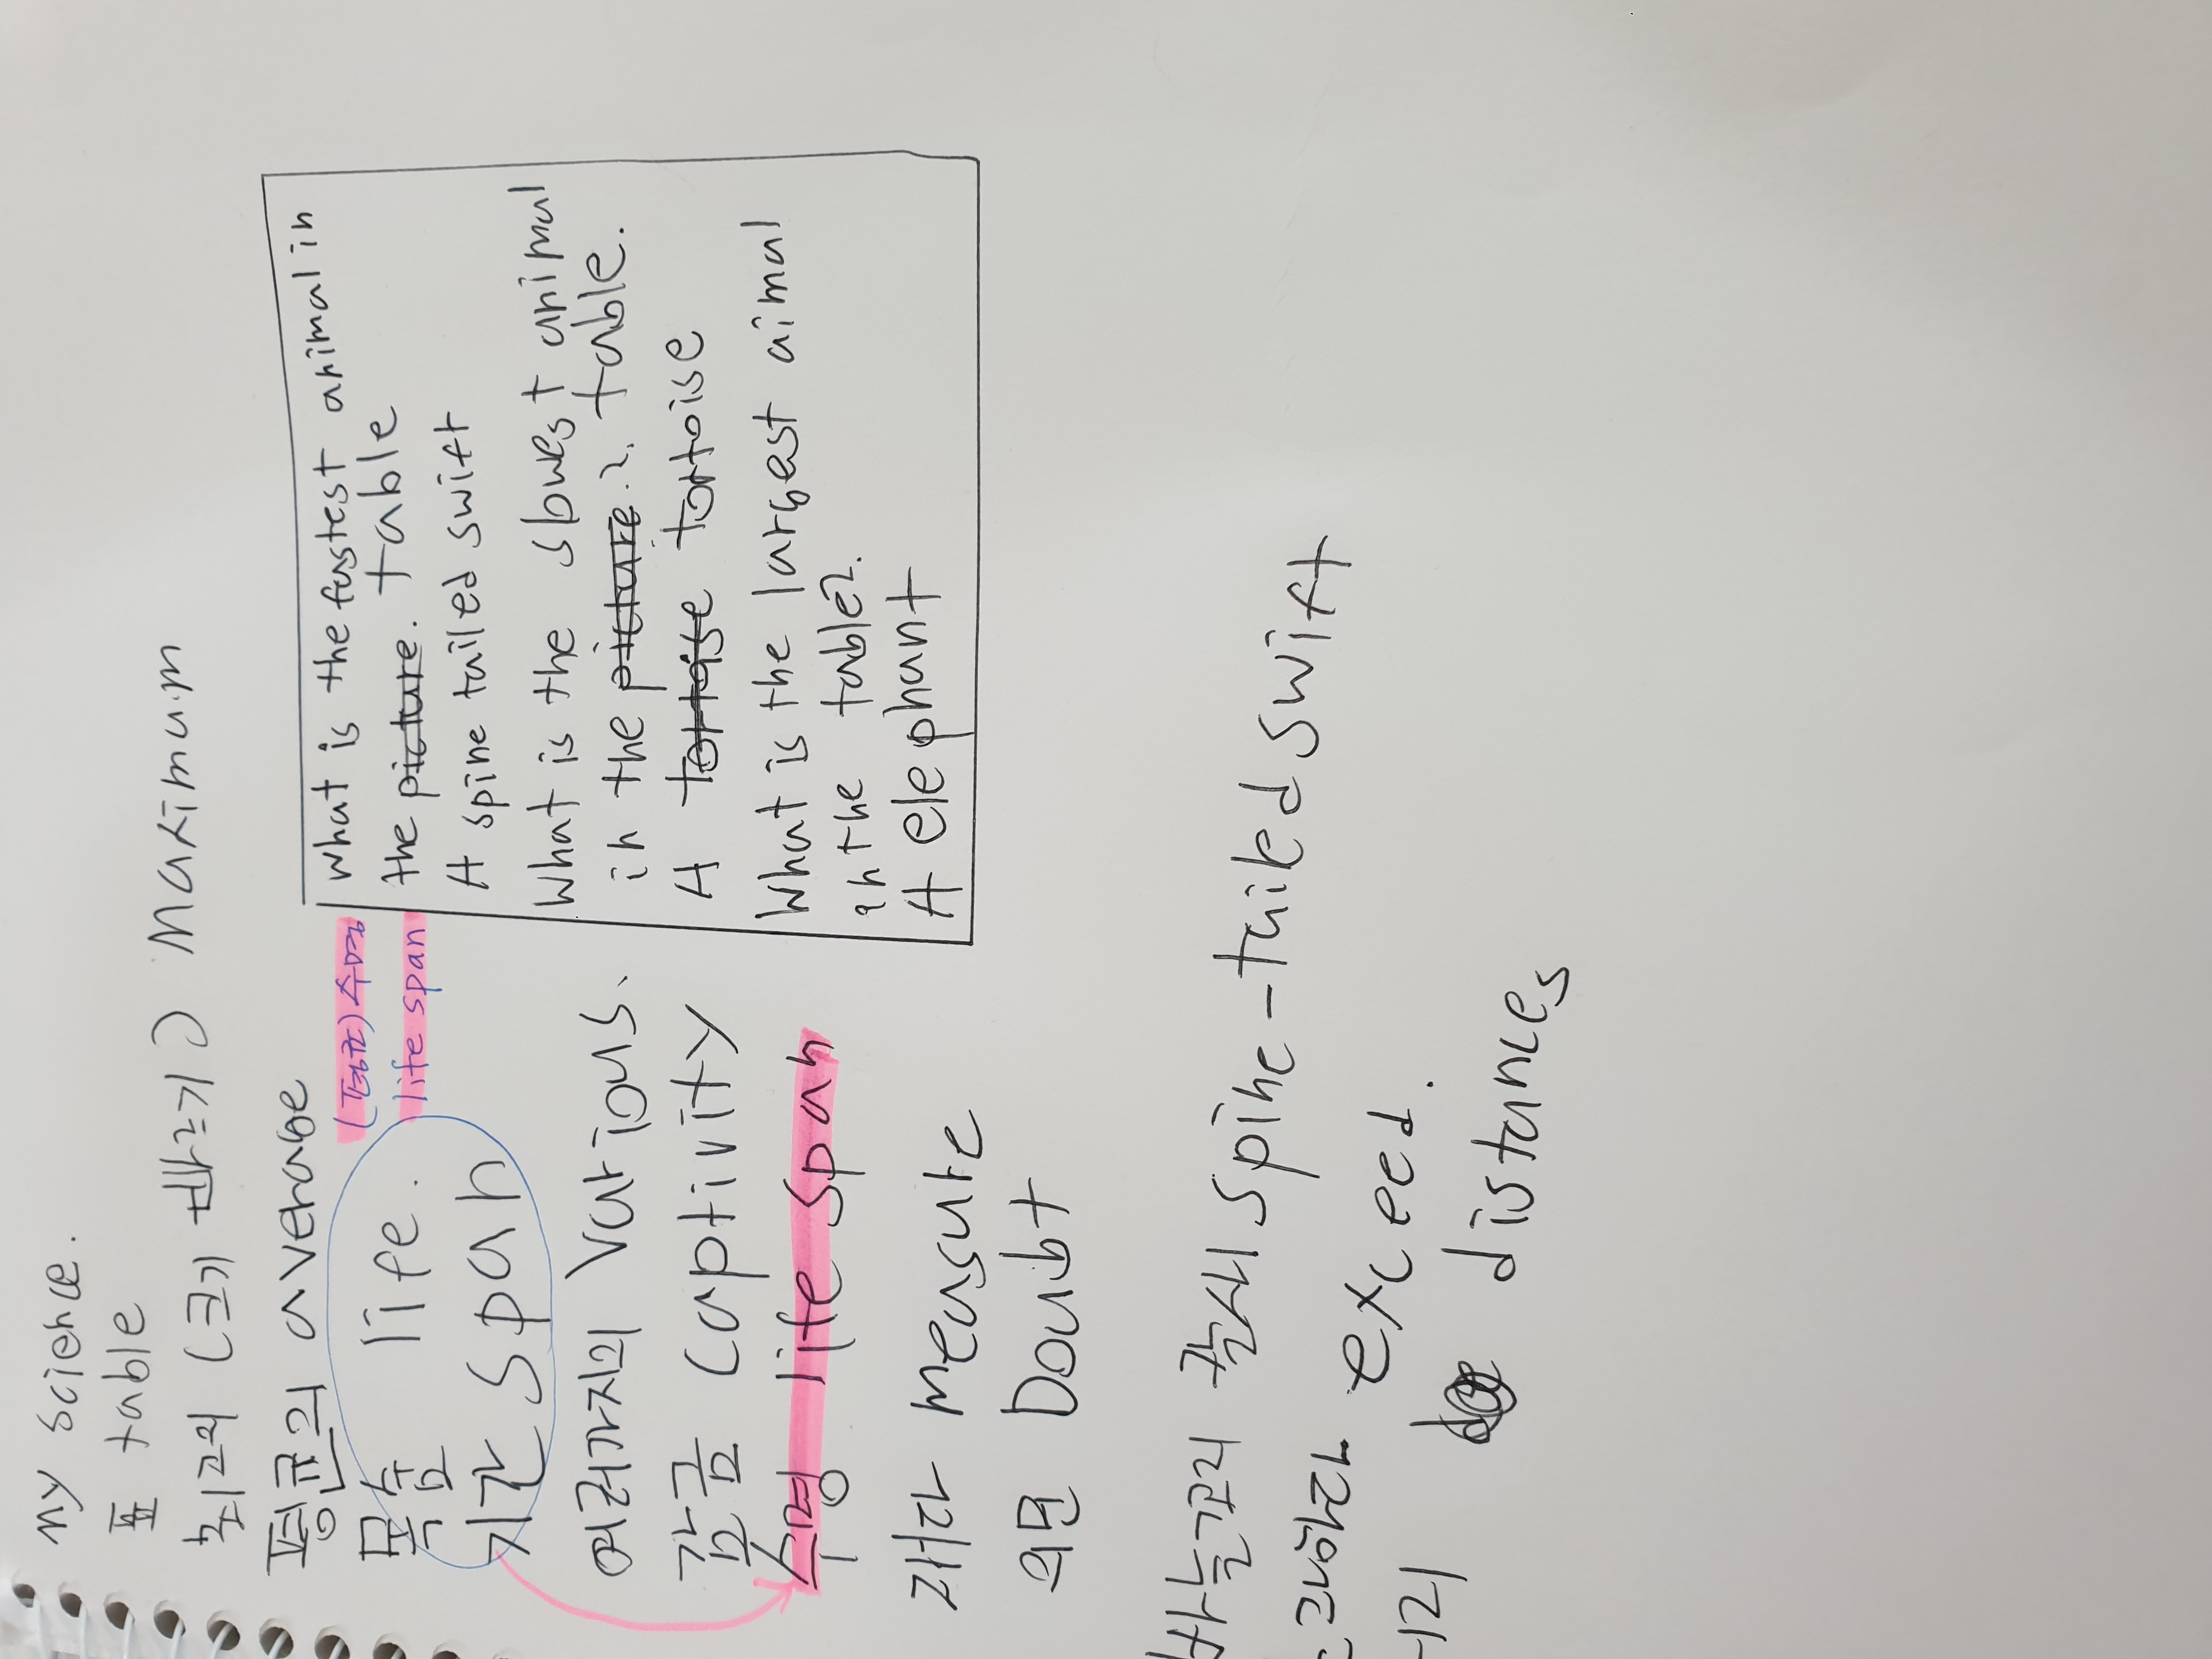 my science.
표 table
최고의 (크기 빠르기) Maximum
평균의 average
(평균) 수명
life span
목숨 life.
기간 span
여러가지의 Various.
감금 Captivity
수명 life span
재다 measure
의문 Doubt
바늘꼬리 칼새 spine-tailed swift
초과하다 exceed.
거리 distances
What is the fastest animal in
the picture. table
A spine tailed swift
What is the slowest animal
in the picture.? table.
A tortoise tortoise
What is the largest aimal
in the table?
A elephant